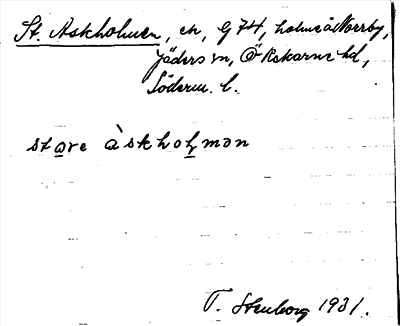 St. Askholmen, en, G 74, holme å Norrby,
Jäders sn, Ö Rekarne hd,
Söderm. l.
stare àskhoḻmən
T. Stenborg 1931.